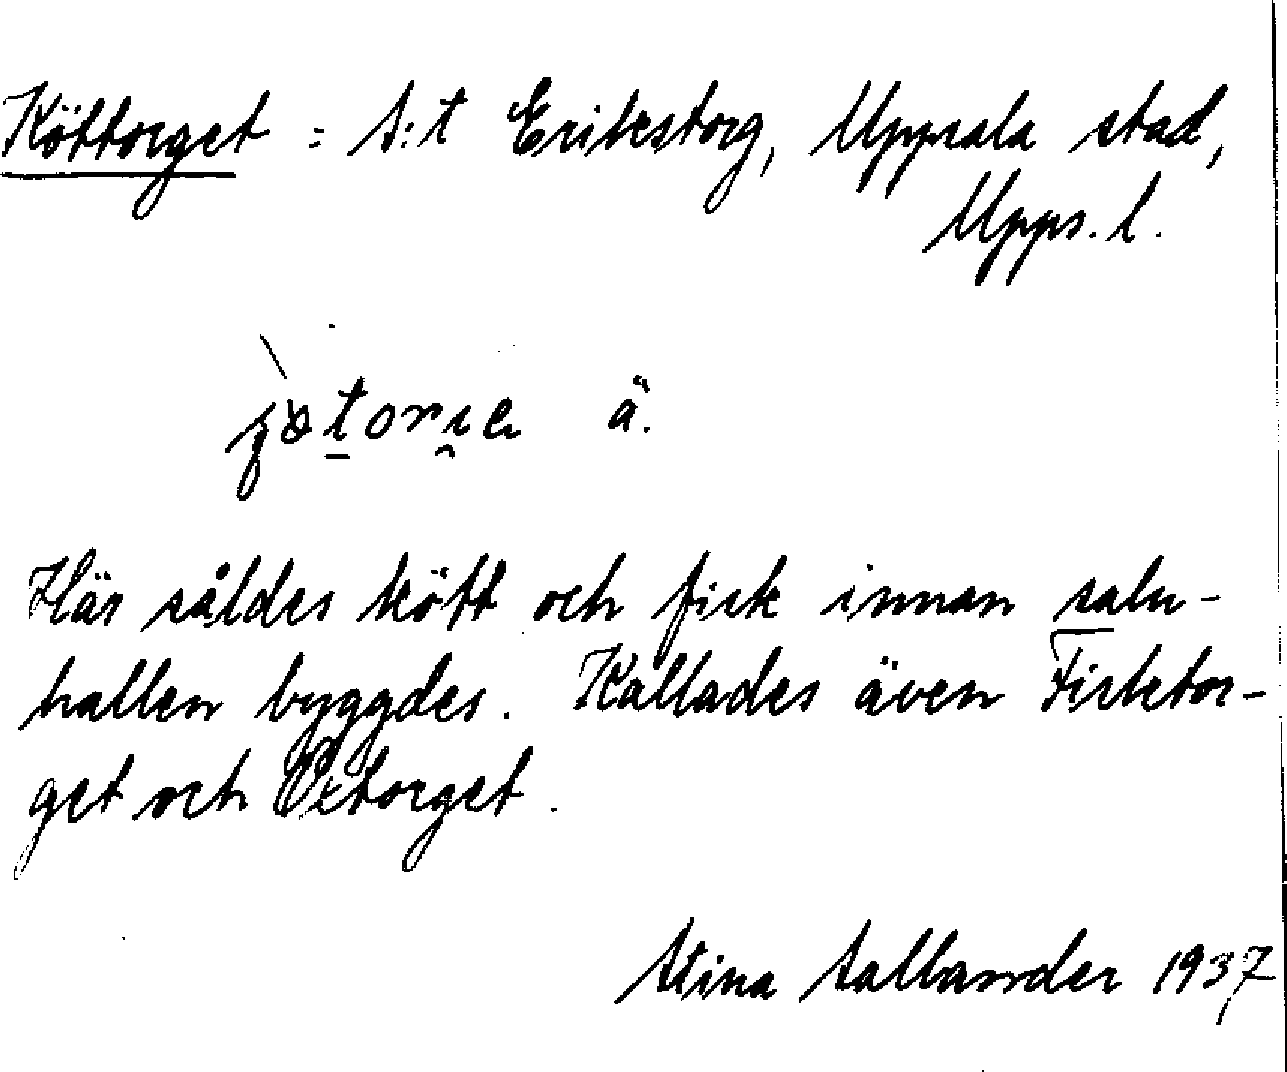 Köttorget = S:t Erikstorg, Uppsala stad,
Upps. l.
ä.
Här såldes kött och fisk innan salu-
hallen byggdes. Kallades även Fisketor-
get och Oxtorget.
Stina Sallander 1937